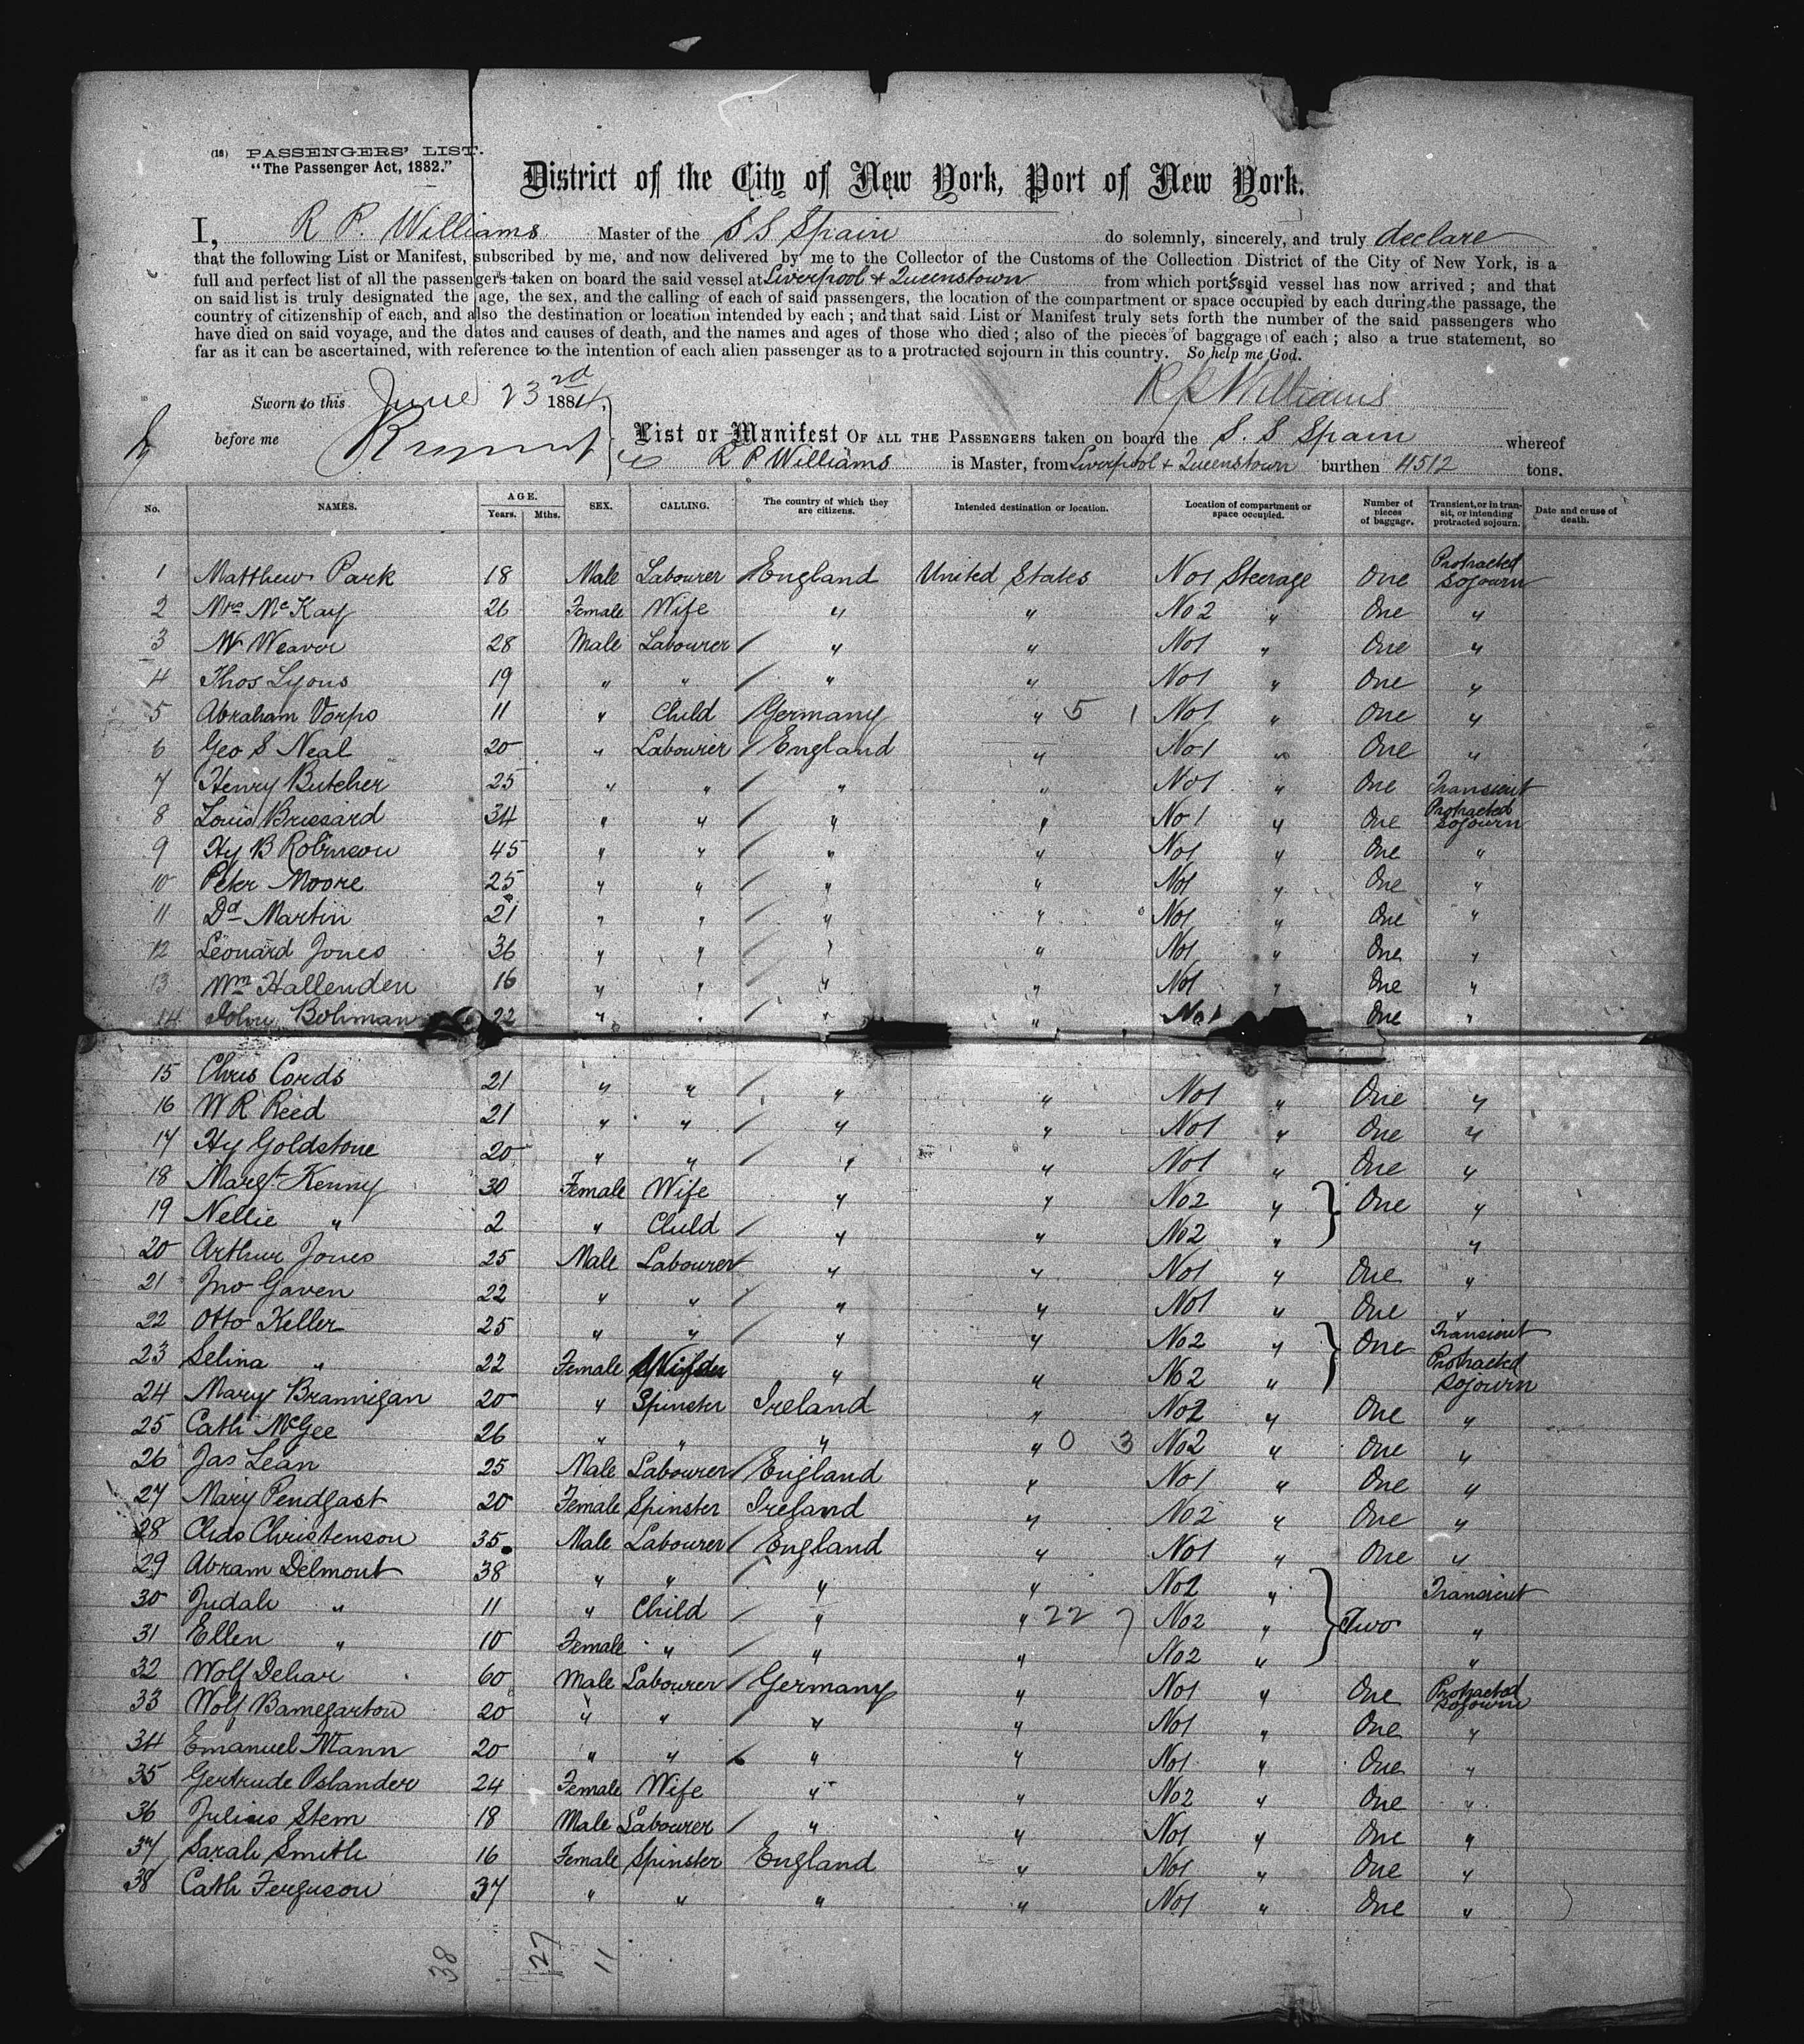 (18) PASSENGERS' LIST.
"The Passenger Act, 1882."
District of the City of New York, Port of New York.
I, R P. Williams Master of the S S Spain do solemnly, sincerely, and truly declare
that the following List or Manifest, subscribed by me, and now delivered by me to the Collector of the Customs of the Collection District of the City of New York, is a
full and perfect list of all the passengers taken on board the said vessel at Liverpool + Queenstown from which ports said vessel has now arrived; and that
on said list is truly designated the age, the sex, and the calling of each of said passengers, the location of the compartment or space occupied by each during the passage, the
country of citizenship of each, and also the destination or location intended by each; and that said List or Manifest truly sets forth the number of the said passengers who
have died on said voyage, and the dates and causes of death, and the names and ages of those who died; also of the pieces of baggage of each; also a true statement, so
far as it can be ascertained, with reference to the intention of each alien passenger as to a protracted sojourn in this country. So help me God.
Sworn to this June 23rd 1884, R P Williams
before me
List or Manifest OF ALL THE PASSENGERS taken on board the S. S Spain whereof
R P Williams is Master, from Liverpool + Queenstown burthen 4512 tons.
No. NAMES. AGE. Years. Mths. SEX. CALLING. The country of which they are citizens. Intended destination or location. Location of compartment or space occupied. Number of pieces of baggage. Transient, or in transit, or intending protracted sojourn. Date and cause of death.
1 Matthew Park 18 Male Labourer England United States No1 Steerage One Protracted Sojourn
2 Mrs McKay 26 Female Wife " " No2 " One "
3 W Weaver 28 Male Labourer " " No1 " One "
4 Thos Lyons 19 " " " " No1 " One "
5 Abraham Vorps 11 " Child Germany " 5 1 No1 " One "
6 Geo S Neal 20 " Labourer England " No1 " One "
7 Henry Butcher 25 " " " " No1 " One Transient
8 Louis Brissard 34 " " " " No1 " One Protracted Sojourn
9 Hy B Robinson 45 " " " " No1 " One "
10 Peter Moore 25 " " " " No1 " One "
11 Dd Martin 21 " " " " No1 " One "
12 Leonard Jones 36 " " " " No1 " One "
13 Wm Hallenden 16 " " " " No1 " One "
14 John Bohman 22 " " " " No1 One "
15 Chris Cords 21 " " " " No1 " One "
16 W R Reed 21 " " " " No1 " One "
17 Hy Goldstone 20 " " " " No1 " One "
18 Margt Kenny 30 Female Wife " " No2 " One "
19 Nellie " 2 " Child " " No2 " "
20 Arthur Jones 25 Male Labourer " " No1 " One "
21 Jno Gaven 22 " " " " No1 " One "
22 Otto Keller 25 " " " " No2 " One Transient
23 Selina " 22 Female Wife " " No2 " Protracted Sojourn
24 Mary Brannigan 20 " Spinster Ireland " No2 " One "
25 Cath McGee 26 " " " " 0 3 No2 " One "
26 Jas Lean 25 Male Labourer England " No1 " One "
27 Mary Pendgast 20 Female Spinster Ireland " No2 " One "
28 Chas Christenson 35 Male Labourer England " No1 " One "
29 Abram Delmont 38 " " " " No2 " Transient
30 Judah " 11 " Child " " 22 7 No2 " Two "
31 Ellen " 10 Female " " " No2 " "
32 Wolf Dehar 60 Male Labourer Germany " No1 " One Protracted Sojourn
33 Wolf Bamegarton 20 " " " " No1 " One "
34 Emanuel Mann 20 " " " " No1 " One "
35 Gertrude Oslander 24 Female Wife " " No2 " One "
36 Julius Stern 18 Male Labourer " " No1 " One "
37 Sarah Smith 16 Female Spinster England " No1 " One "
38 Cath Ferguson 37 " " " " No1 " One "
38 27 11